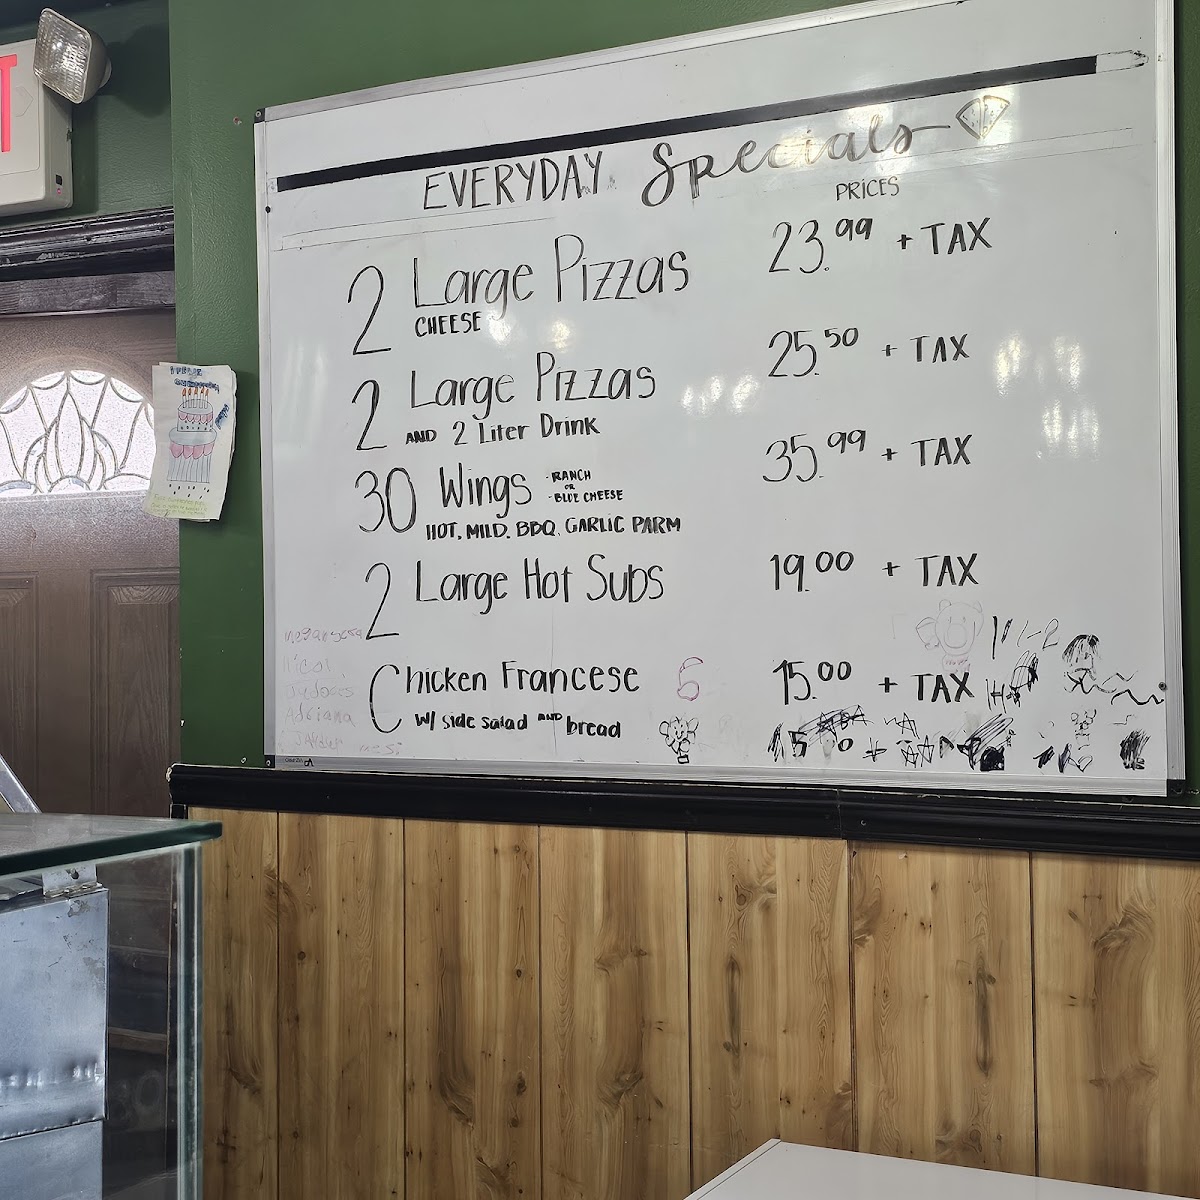 T
EVERYDAY Specials
PRICES
2 Large Pizzas 23.99 + TAX
CHEESE
2 Large Pizzas 25.50 + TAX
AND 2 Liter Drink
30 Wings 35.99 + TAX
- RANCH
OR
- BLUE CHEESE
HOT, MILD, BBQ, GARLIC PARM
2 Large Hot Subs 19.00 + TAX
Chicken Francese 15.00 + TAX
W/ side salad AND bread
Adriana